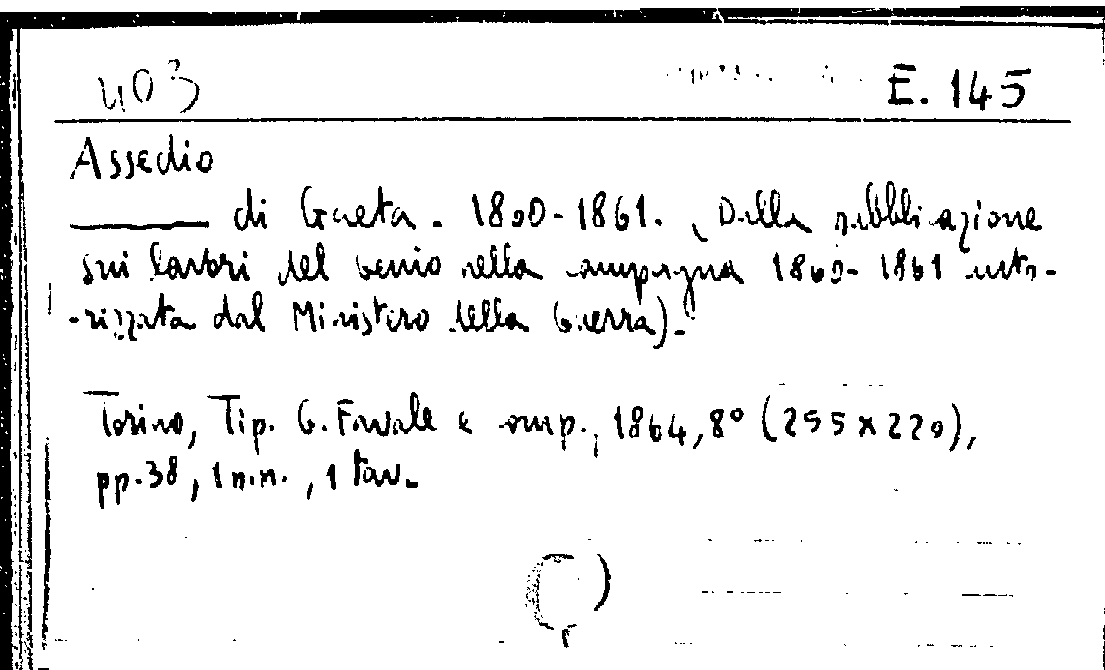 403 E. 145
Assedio
——— di Gaeta. 1860-1861. (Dalla pubblicazione
sui lavori del Genio nella campagna 1860-1861 auto-
-rizzata dal Ministero della Guerra).
Torino, Tip. G. Favale e comp., 1864, 8° (255x220),
pp. 38, 1 n.n., 1 tav.